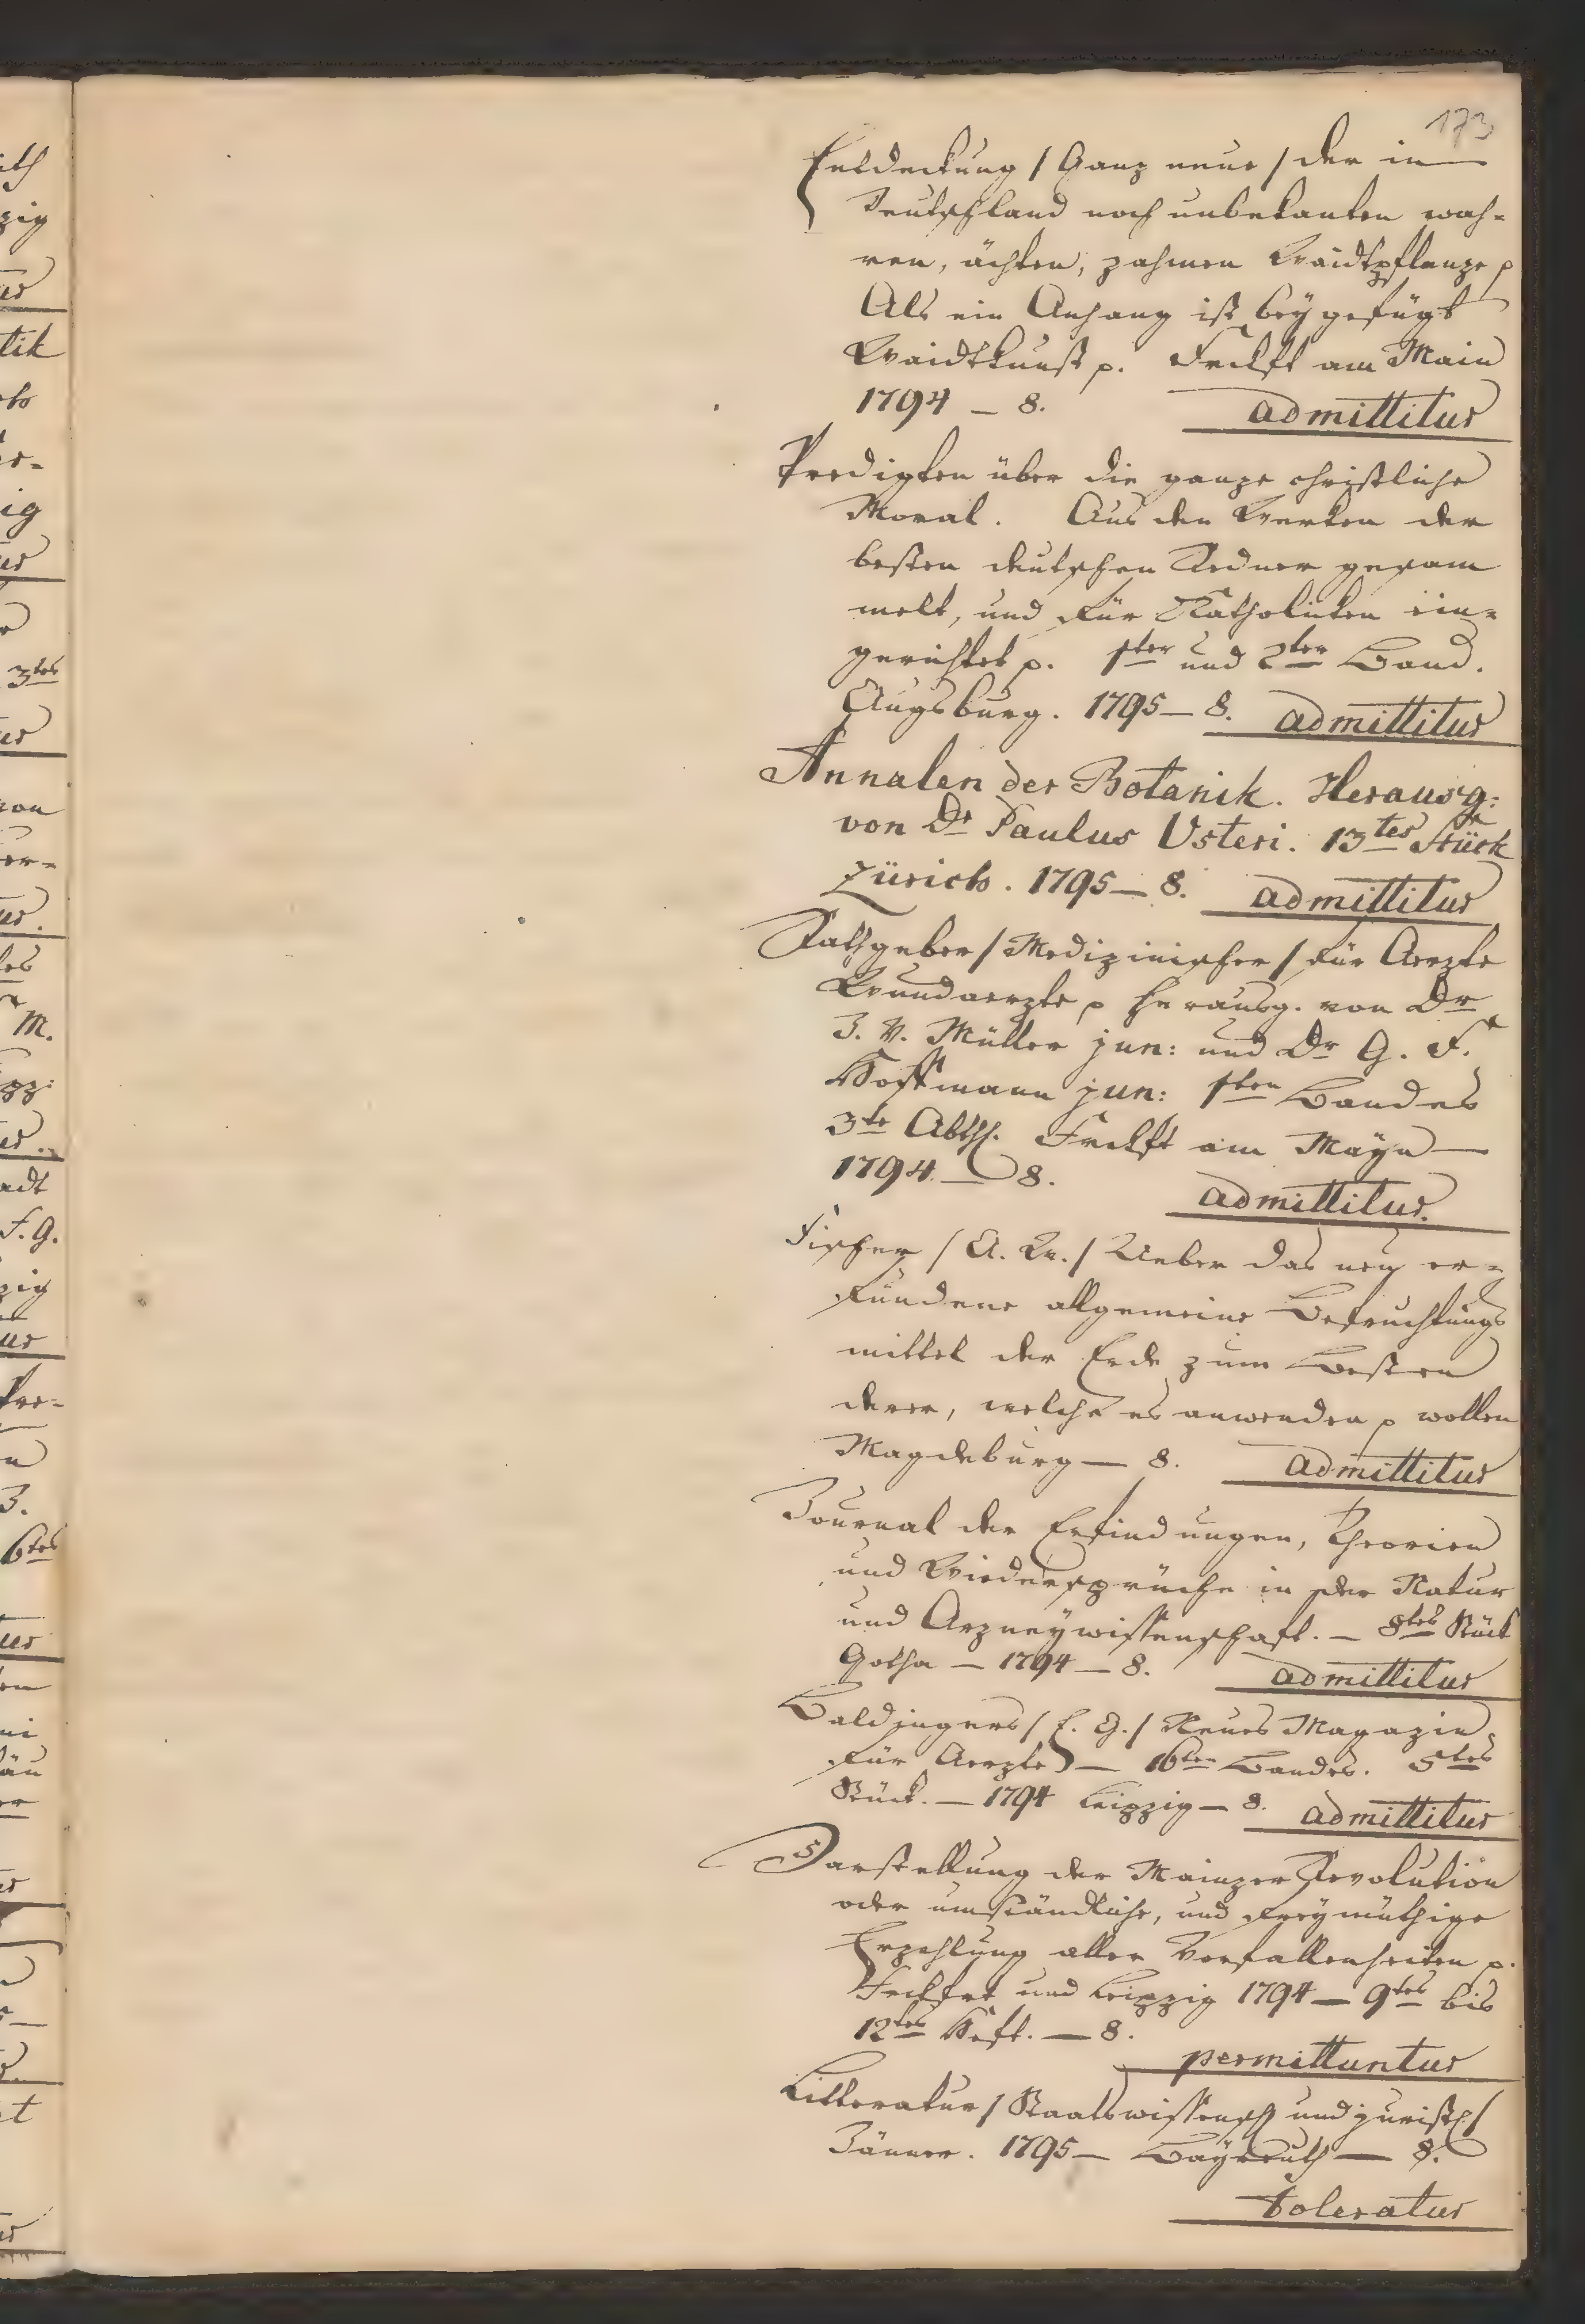 173
Entdeckung / Ganz neue / der in
Teutschland noch unbekanten wah-
ren, ächten, zahmen Waidtpflanze p
Als ein Anhang ist beygefügt
Waidtkunst p. Frckft am Main
1794 – 8. admittitur
Predigten über die ganze christliche
Moral. Aus den Werken der
besten deutschen Redner gesam
melt, und für Katholicken ein-
gerichtet p. 1ter und 2ter Band.
Augsburg. 1795 – 8. admittitur
Annalen der Botanik. Herausg:
von Dr Paulus Usteri. 13tes Stück
Zürich. 1795 – 8. admittitur
Rathgeber / Medizinischer / für Aerzte
Wundaerzte p herausg. von Dr
J. V. Müller jun: und Dr G. F.
Hoffmann jun: 1ten Bandes
3te Abth. Frckft am Mayn –
1794 – 8.
admittitur.
Fischer / A. W. / Ueber das neu er-
fundene allgemeine Befruchtungs
mittel der Erde zum Besten
derer, welche es anwenden p wollen
Magdeburg – 8. admittitur
Journal der Erfindungen, Theorien
und Wiedersprüche in der Natur
und Arzneywissenschaft. – 8tes Stück
Gotha – 1794 – 8. admittitur
Baldingers / E. G. / Neues Magazin
für Aerzte – 16ten Bandes. 5tes
Stück. – 1794 Leipzig – 8. admittitur
Darstellung der Mainzer Revolution
oder umständliche, und freymüthige
Erzehlung aller Vorfallenheiten p.
Frckfrt und Leipzig 1794 – 9tes bis
12tes Heft. – 8.
permittuntur
Litteratur / Staatswissensch und juristh /
Jänner. 1795 – Bayreuth – 8.
toleratur